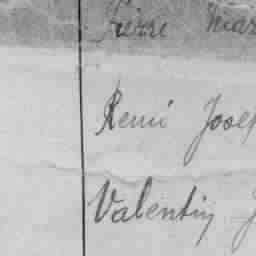 Pierre Mar
Remi Josep
Valentin J